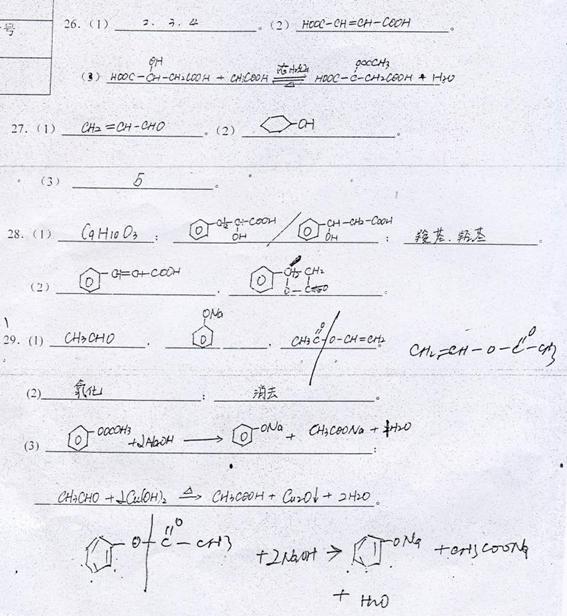 号
26.(1) 2.3.4 。(2) HOOC-CH=CH-COOH
OH OOCCH3
(3) HOOC-CH-CH2COOH + CH3COOH 浓H2SO4 △ HOOC-C-CH2COOH + H2O
27.(1) CH2=CH-CHO 。(2) -OH 。
(3) 5 。
28.(1) C9H10O3 ; -CH2-CH-COOH OH / -CH-CH2-COOH OH ; 羧基、羟基 。
(2) -CH=CH-COOH . CH2 O-
ONa
29.(1) CH3CHO . . CH3C-O-CH=CH2 O CH2=CH-O-C-CH3 O
(2) 氧化 ; 消去 。
(3) -OOCCH3 +2NaOH → -ONa + CH3COONa + H2O ;
CH3CHO +2Cu(OH)2 △→ CH3COOH + Cu2O↓ + 2H2O 。
O-C-CH3 O +2NaOH → -ONa +CH3COONa
+ H2O